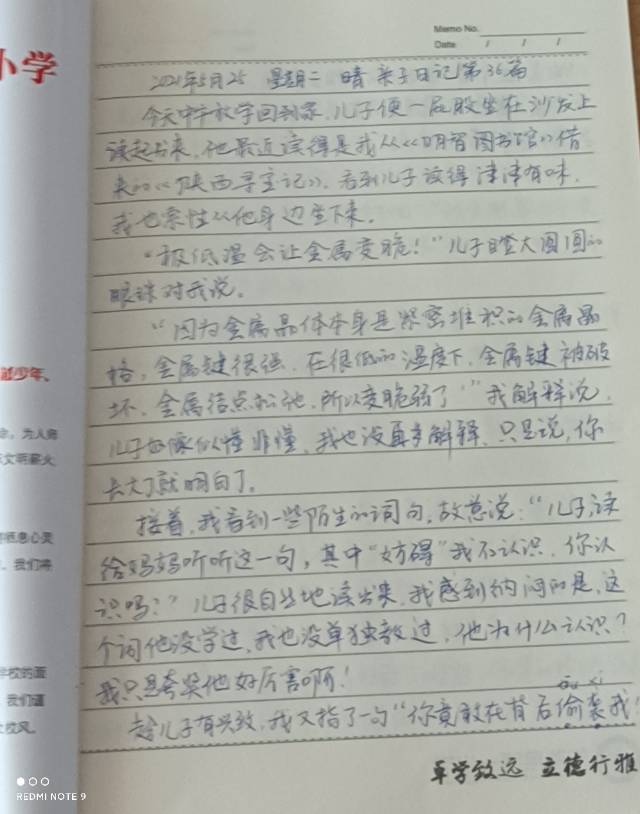 小学
Memo No.
Date / / /
2021年5月25 星期二 晴 亲子日记第36篇
今天中午放学回到家,儿子便一屁股坐在沙发上
读起书来,他最近读得是我从《明智图书馆》借
来的《陕西寻宝记》,看到儿子读得津津有味,
我也索性从他身边坐下来。
“极低温会让金属变脆!”儿子瞪大圆圆的
眼珠对我说。
“因为金属晶体本身是紧密堆积的金属晶
格,金属键很强,在很低的温度下,金属键被破
坏,金属结点松弛,所以变脆弱了”我解释说,
儿子好像似懂非懂,我也没再多解释,只是说,你
长大了就明白了。
接着,我看到一些陌生的词句,故意说:“儿子,读
给妈妈听听这一句,其中“妨碍”我不认识,你认
识吗?”儿子很自然地读出来,我感到纳闷的是,这
个词他没学过,我也没单独教过,他为什么认识?
我只是夸奖他好厉害啊!
tōu xí
趁儿子有兴致,我又指了一句“你竟敢在背后偷袭我!
卓学致远 立德行雅
少年、
,为人师
文明薪火
息心灵
,我们将
学校的面
我们谨
校风。
REDMI NOTE 9